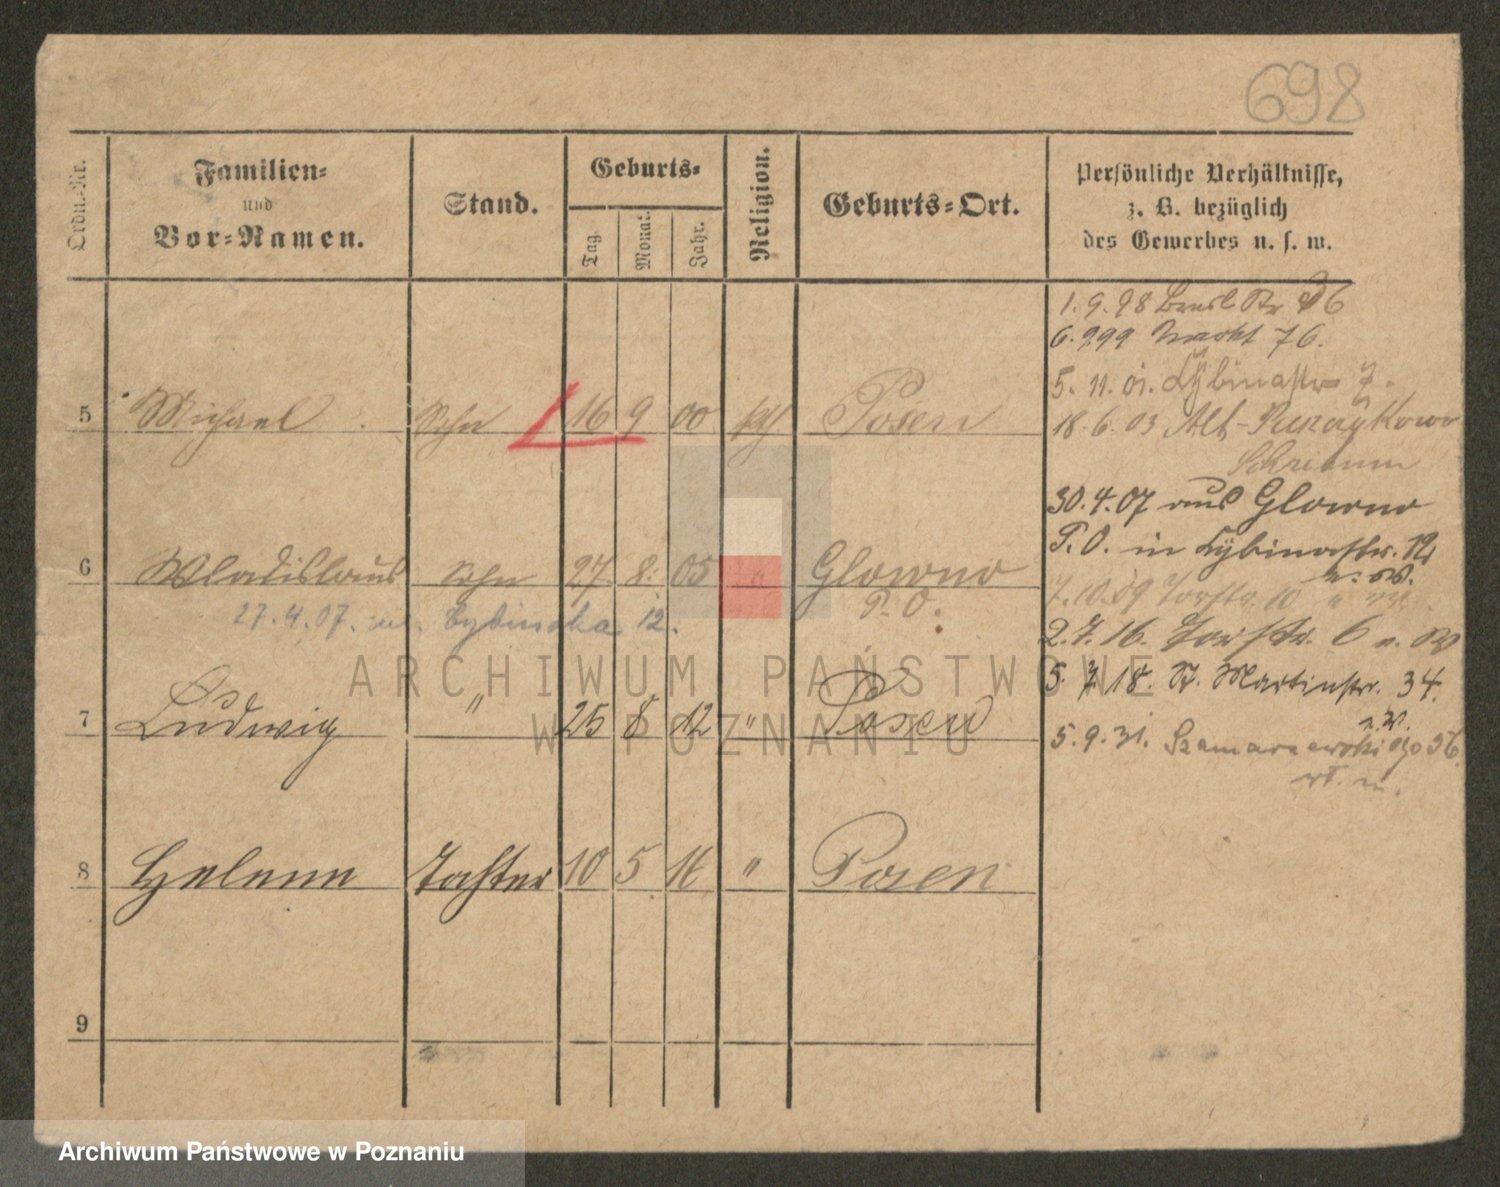 698
Ordn.-Nr.
Familien-
und
Vor-Namen.
Stand.
Geburts-
Tag.
Monat.
Jahr.
Religion.
Geburts-Ort.
Persönliche Verhältnisse,
z. B. bezüglich
des Gewerbes u. s. w.
1.9.98 Bresl Str 36
6.9.99 Markt 76.
5. 11. 01. Lybinastr 7.
18.6.03 Alt-
Schrimm
30.4.07 aus Glowno
P.O. in Lybinastr. 12
7.10.09 Torstr. 10
2.7.16. Torstr. 6 n. W
5. 7. 18. St. Martinstr. 34.
n. W.
5.9.31. Szamarzewskiego 56
5 Michael Sohn 16 9 00 kth Posen
6 Wladislaus Sohn 27. 8. 05 " Glowno
P. O.
27.4.07. Lybinska 12.
7 Ludwig " 25 8 12 " Posen
8 Helene Tochter 10 5 16 " Posen
9
ARCHIWUM PAŃSTWOWE
W POZNANIU
Archiwum Państwowe w Poznaniu